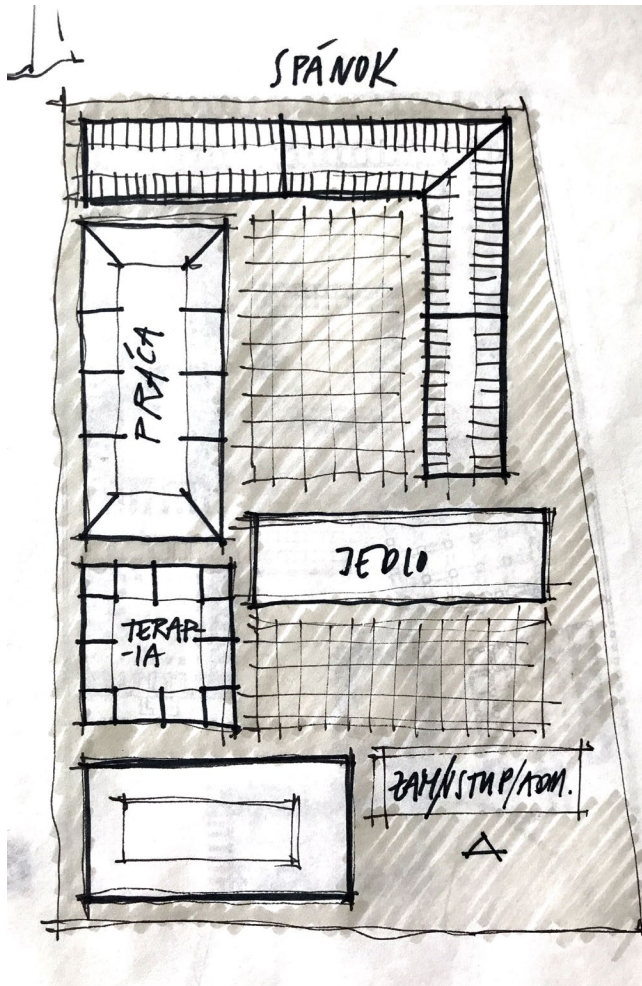 SPÁNOK
PRÁCA
JEDLO
TERAP-
-IA
ZAM/VSTUP/ADM.